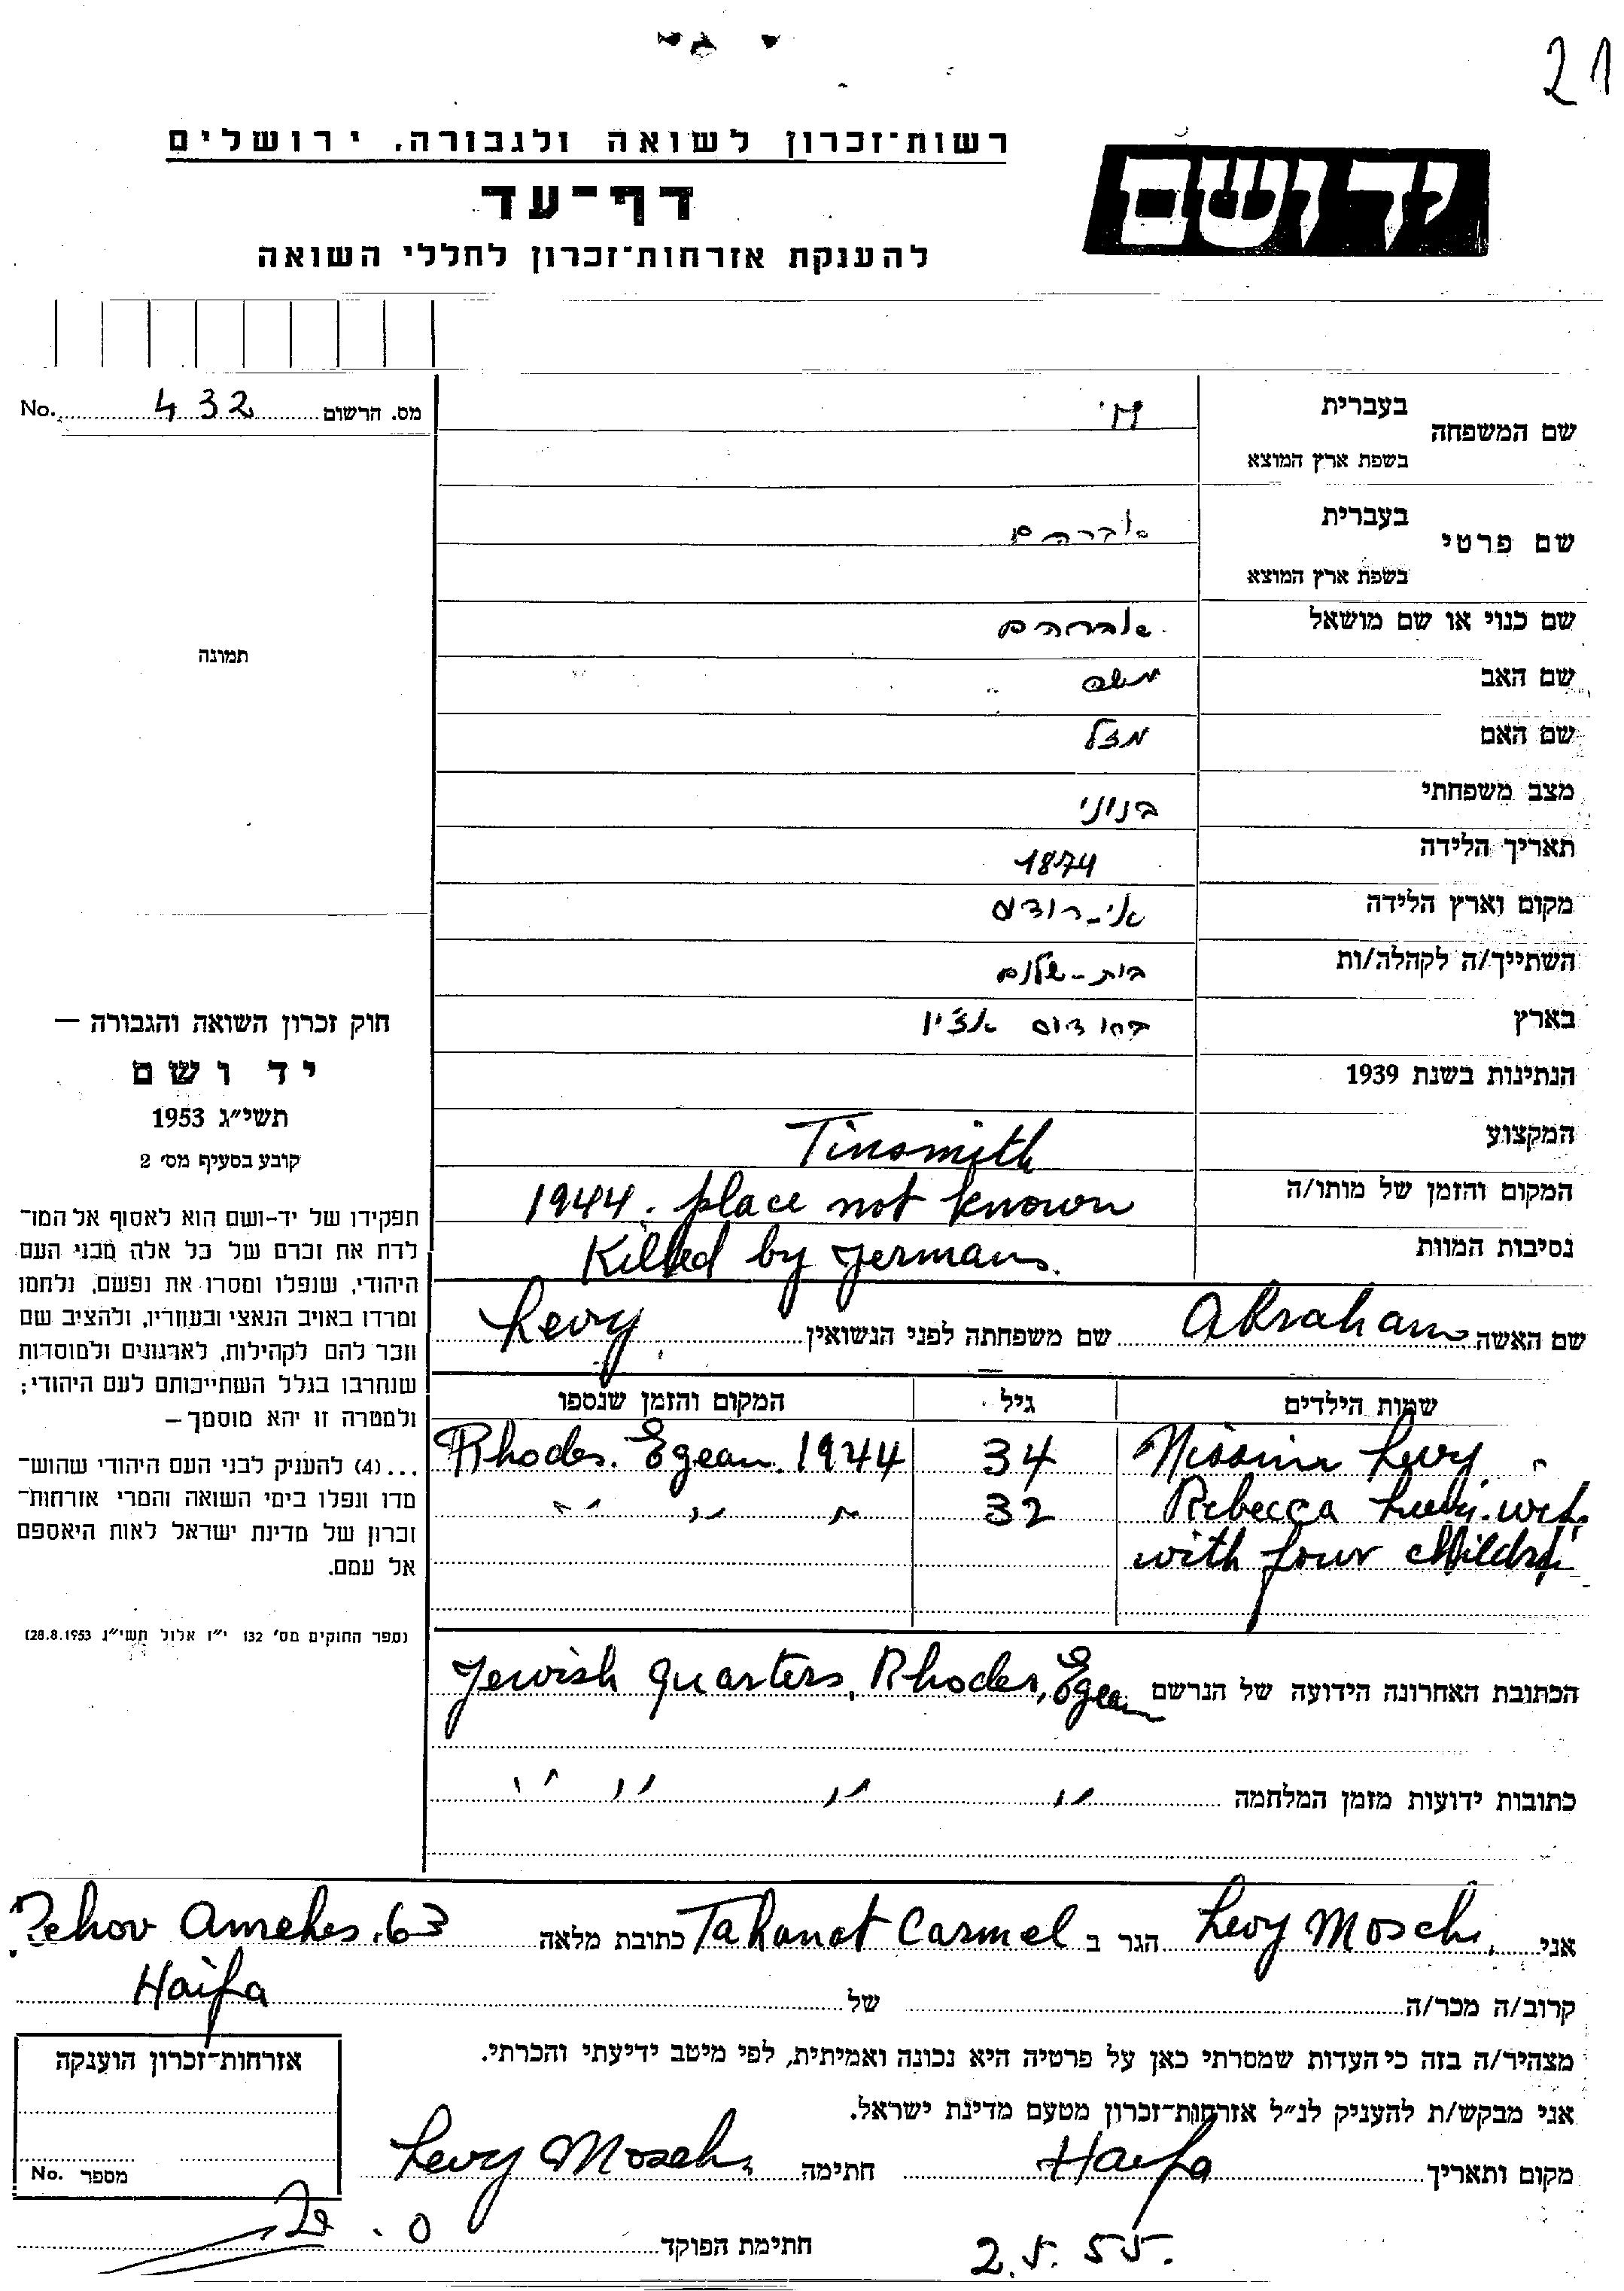 21
רשות־זכרון לשואה ולגבורה, ירושלים
יד ושם
דף־עד
להענקת אזרחות־זכרון לחללי השואה
No. 432 מס. הרשום
שם המשפחה בעברית
בשפת ארץ המוצא
שם פרטי בעברית אברהם
בשפת ארץ המוצא
שם כנוי או שם מושאל אברהם
שם האב משה
שם האם מזל
מצב משפחתי בנוני
תאריך הלידה 1874
מקום וארץ הלידה אי-רודוס
השתייך/ה לקהלה/ות בית-שלום
בארץ
הנתינות בשנת 1939
המקצוע Tinsmith
המקום והזמן של מותו/ה 1944. place not known
נסיבות המוות Killed by Germans.
שם האשה Abraham שם משפחתה לפני הנשואין Levy
שמות הילדים גיל המקום והזמן שנספו
Nissim Levy 34 Rhodes. Egean. 1944
Rebecca 32 " " "
with four
הכתובת האחרונה הידועה של הנרשם Jewish quarters, Rhodes, Egean
כתובות ידועות מזמן המלחמה " " " "
תמונה
חוק זכרון השואה והגבורה —
יד ושם
תשי״ג 1953
קובע בסעיף מס׳ 2
תפקידו של יד-ושם הוא לאסוף אל המו־
לדת את זכרם של כל אלה מבני העם
היהודי, שנפלו ומסרו את נפשם, נלחמו
ומרדו באויב הנאצי ובעוזריו, ולהציב שם
וזכר להם לקהילות, לארגונים ולמוסדות
שנחרבו בגלל השתייכותם לעם היהודי;
ולמטרה זו יהא מוסמך –
...(4) להעניק לבני העם היהודי שהוש־
מדו ונפלו בימי השואה והמרי אזרחות־
זכרון של מדינת ישראל לאות היאספם
אל עמם.
(ספר החוקים מס׳ 132 י״ז אלול תשי״ג 28.8.1953)
אני Levy Mosch הגר ב Tahanat Carmel כתובת מלאה Rehov Amehes. 63
Haifa
קרוב/ה מכר/ה של
מצהיר/ה בזה כי העדות שמסרתי כאן על פרטיה היא נכונה ואמיתית, לפי מיטב ידיעתי והכרתי.
אני מבקש/ת להעניק לנ״ל אזרחות־זכרון מטעם מדינת ישראל.
מקום ותאריך Haifa חתימה Levy Mosch
2.5.55.
חתימת הפוקד
אזרחות־זכרון הוענקה
מספר No.